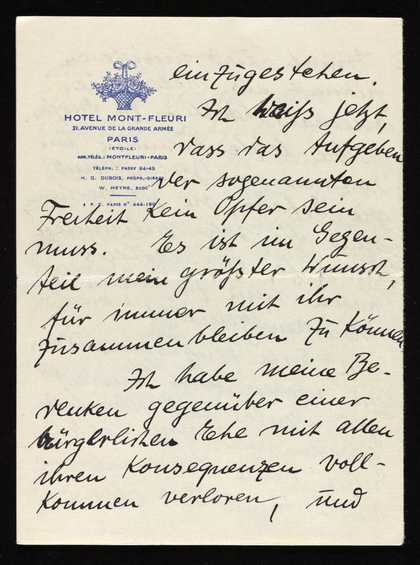 HOTEL MONT-FLEURI
21, AVENUE DE LA GRANDE ARMÉE
PARIS
(ÉTOILE)
ADR. TÉLÉG.: MONTFLEURI-PARIS
H. G. DUBOIS,
W. HEYNE,
einzugestehen.
Ich weiß jetzt,
dass das Aufgeben
der sogenannten
Freiheit kein Opfer sein
muss. Es ist im Gegen-
teil mein größter Wunsch,
für immer mit ihr
zusammenbleiben zu können
Ich habe meine Be-
denken gegenüber einer
bürgerlichen Ehe mit allen
ihren Konsequenzen voll-
kommen verloren, und